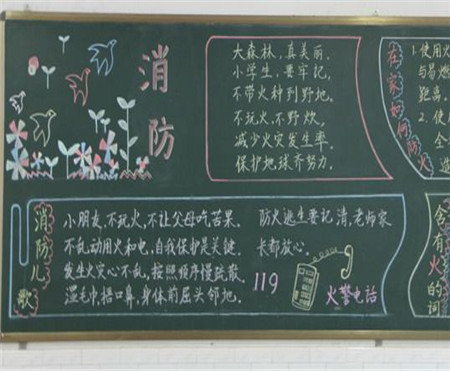 消防
大森林,真美丽,
小学生,要牢记,
不带火种到野地。
不玩火、不野炊,
减少火灾发生率,
保护地球齐努力。
在家如何防火
1.使用火
与易燃
距离。
2.使用
全
消防儿歌
小朋友,不玩火,不让父母吃苦果。
不乱动用火和电,自我保护是关键。
发生火灾心不乱,按照顺序慢疏散。
湿毛巾捂口鼻,身体前屈头邻地。
防火逃生要记清,老师家
长都放心。
119
火警电话
含有火的词